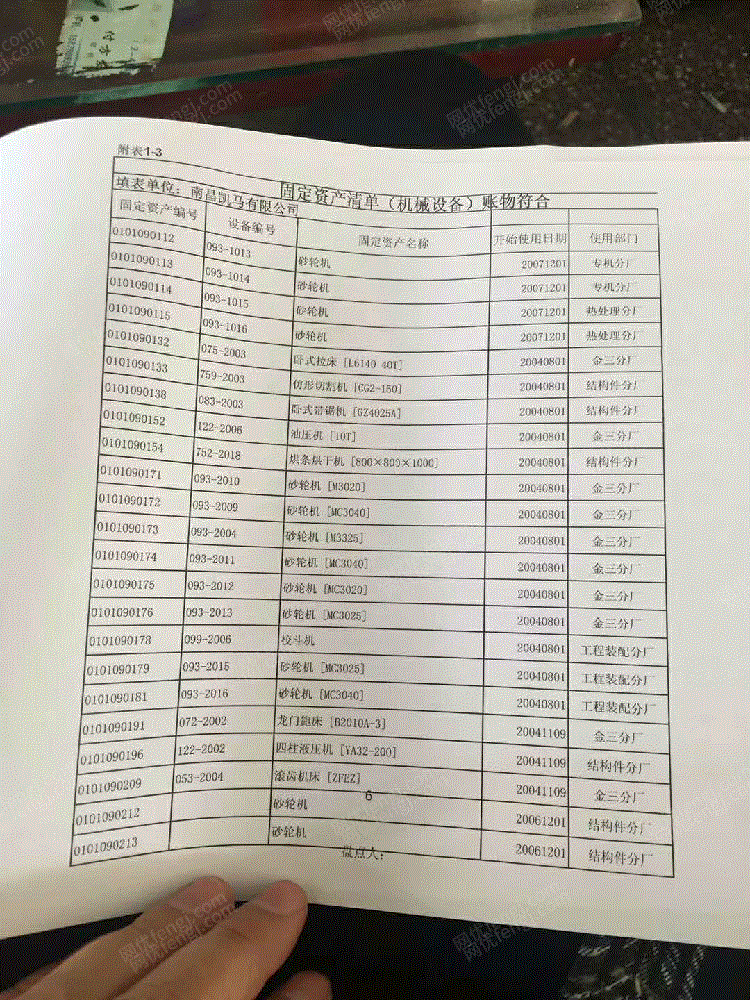 附表1-3
固定资产清单（机械设备）账物符合
填表单位：南昌凯马有限公司
固定资产编号 设备编号 固定资产名称 开始使用日期 使用部门
0101090112 093-1013 砂轮机 20071201 专机分厂
0101090113 093-1014 砂轮机 20071201 专机分厂
0101090114 093-1015 砂轮机 20071201 热处理分厂
0101090115 093-1016 砂轮机 20071201 热处理分厂
0101090132 075-2003 卧式拉床[L6140 40T] 20040801 金三分厂
0101090133 759-2003 仿形切割机[CG2-150] 20040801 结构件分厂
0101090138 083-2003 卧式带锯机[GZ4025A] 20040801 结构件分厂
0101090152 122-2006 油压机[10T] 20040801 金三分厂
0101090154 752-2018 焊条烘干机[800×800×1000] 20040801 结构件分厂
0101090171 093-2010 砂轮机[M3020] 20040801 金三分厂
0101090172 093-2009 砂轮机[MC3040] 20040801 金三分厂
0101090173 093-2004 砂轮机[M3325] 20040801 金三分厂
0101090174 093-2011 砂轮机[MC3040] 20040801 金三分厂
0101090175 093-2012 砂轮机[MC3020] 20040801 金三分厂
0101090176 093-2013 砂轮机[MC3025] 20040801 金三分厂
0101090178 099-2006 校斗机 20040801 工程装配分厂
0101090179 093-2015 砂轮机[MC3025] 20040801 工程装配分厂
0101090181 093-2016 砂轮机[MC3040] 20040801 工程装配分厂
0101090191 072-2002 龙门刨床[B2010A-3] 20041109 金三分厂
0101090196 122-2002 四柱液压机[YA32-200] 20041109 结构件分厂
0101090209 053-2004 滚齿机床[ZFEZ] 20041109 金三分厂
0101090212 砂轮机 20061201 结构件分厂
0101090213 砂轮机 20061201 结构件分厂
6
盘点人：